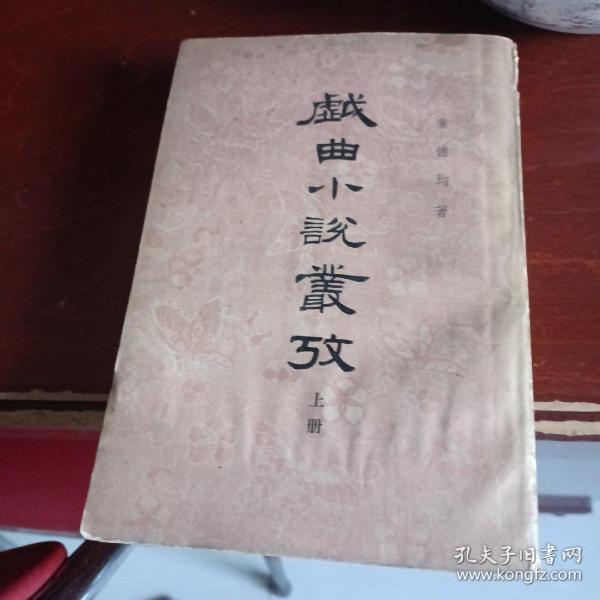 戲曲小説叢攷
上册
葉德均著
孔夫子旧书网
www.kongfz.com